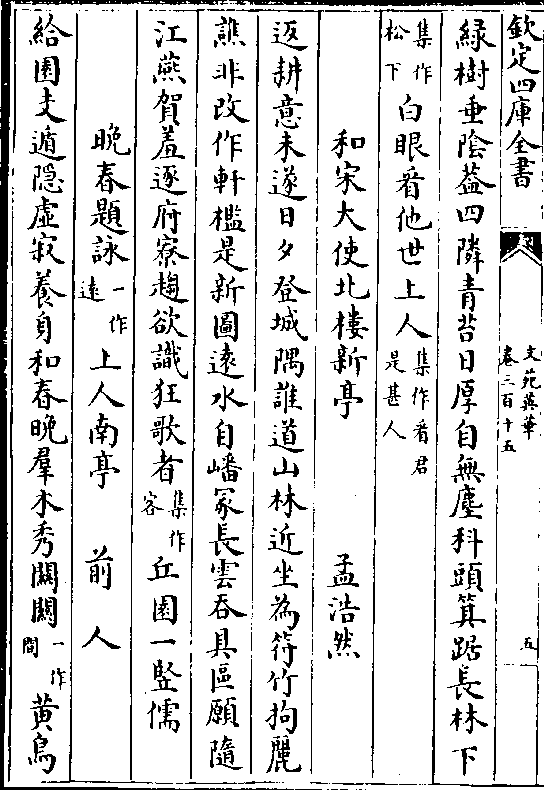 欽定四庫全書
文苑英華
卷三百十五
五
綠樹重陰蓋四隣青苔日厚自無塵科頭箕踞長林下
集作松下白眼看他世上人集作看君是甚人
和宋大使北樓新亭 孟浩然
返耕意未遂日夕登城隅誰道山林近坐為符竹拘麗
譙非改作軒檻是新圖遠水自嶓冢長雲吞具區願隨
江燕賀羞逐府寮趨欲識狂歌者集作客丘園一豎儒
晚春題詠一作遠上人南亭 前人
給園支遁隠虛寂養身和春晚羣木秀關關一作間黃鳥